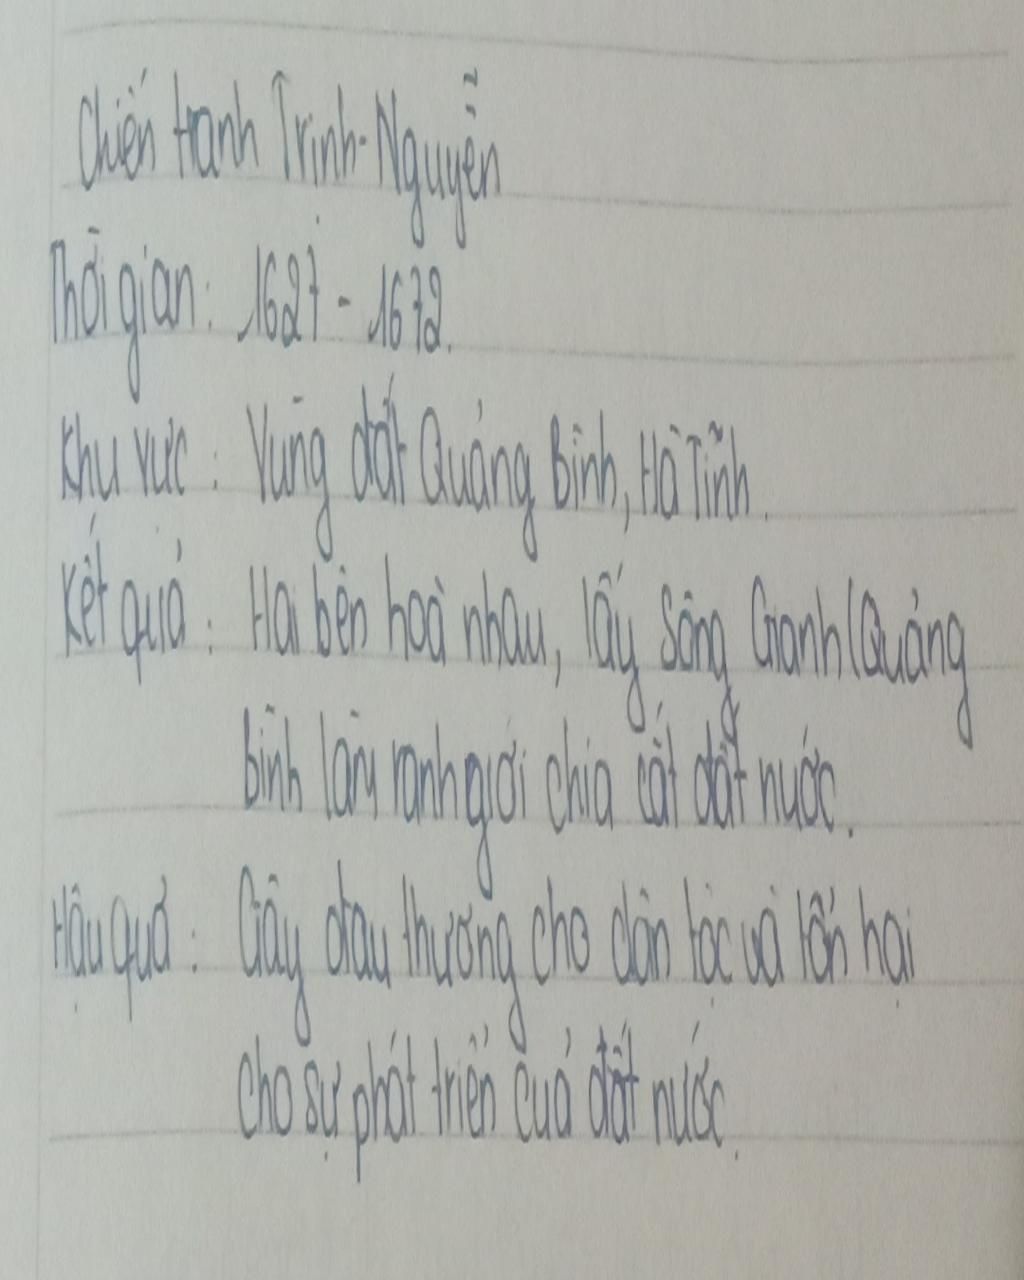 Chiến tranh Trịnh-Nguyễn
Thời gian: 1627 - 1672.
Khu vực: Vùng đất Quảng Bình, Hà Tĩnh.
Kết quả: Hai bên hoà nhau, lấy Sông Gianh(Quảng
Bình làm ranh giới chia cắt đất nước.
Hậu quả: Gây đau thương cho dân tộc và tổn hại
cho sự phát triển của đất nước.